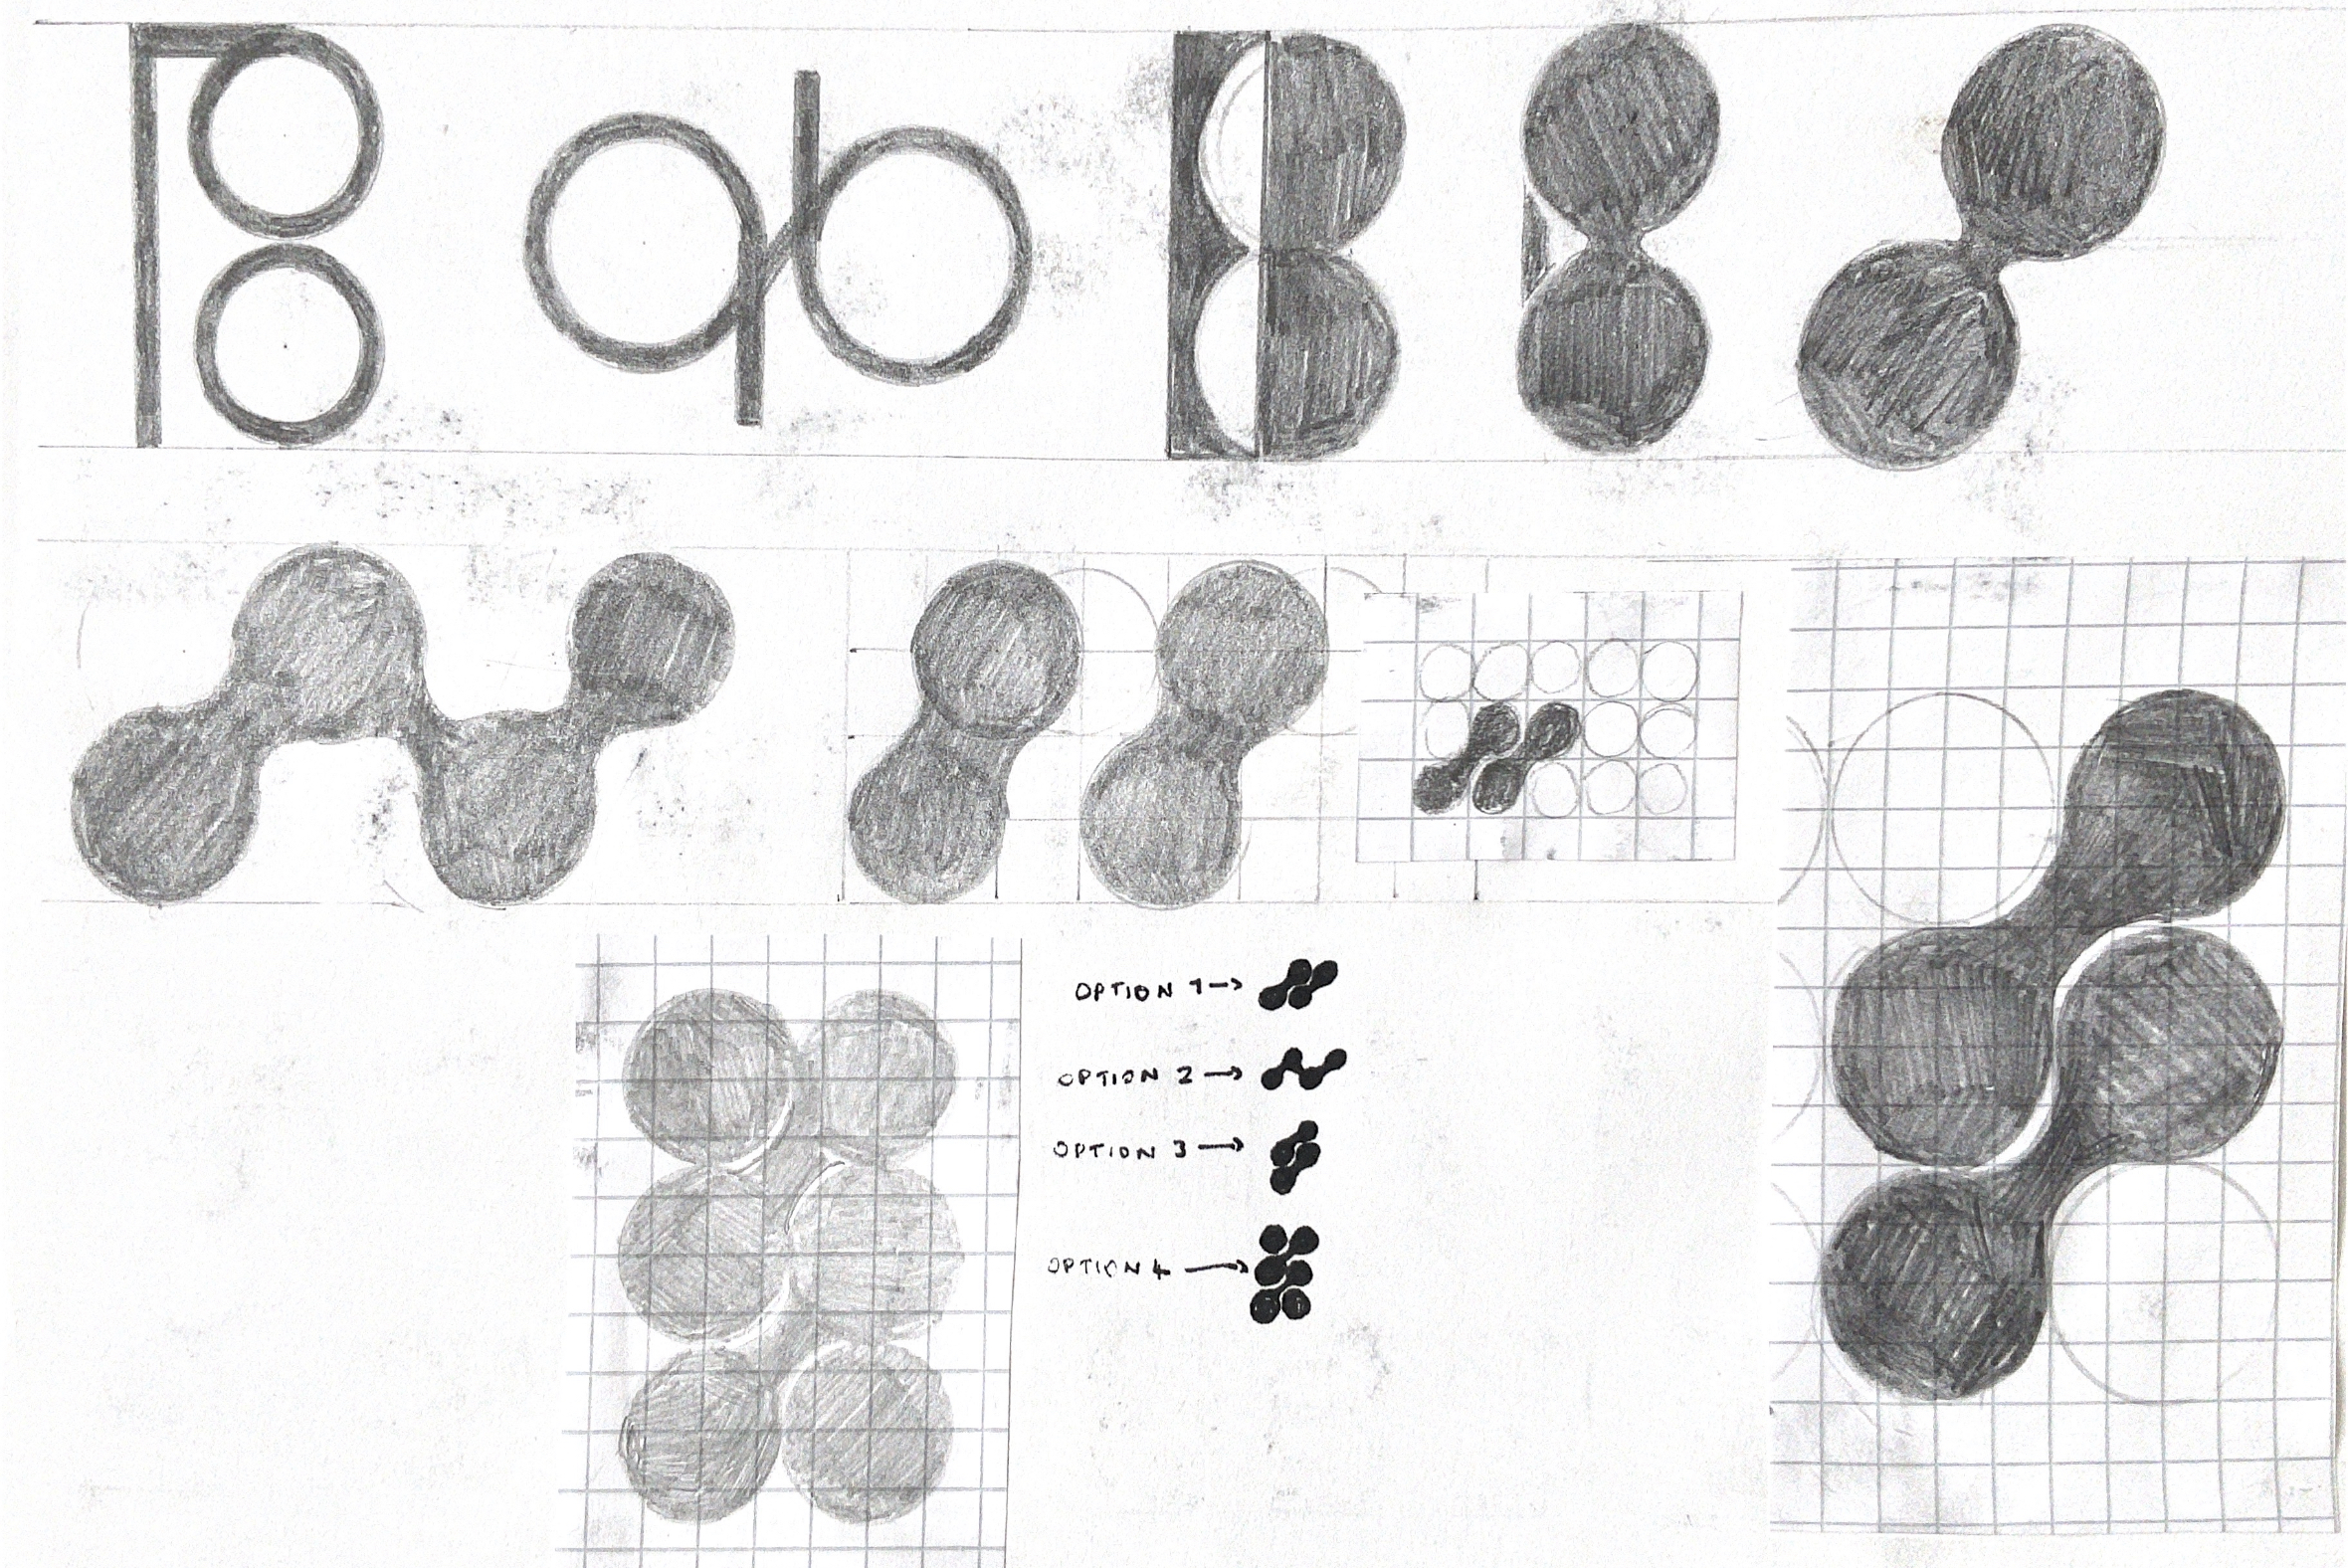 OPTION 1→
OPTION 2→
OPTION 3→
OPTION 4→